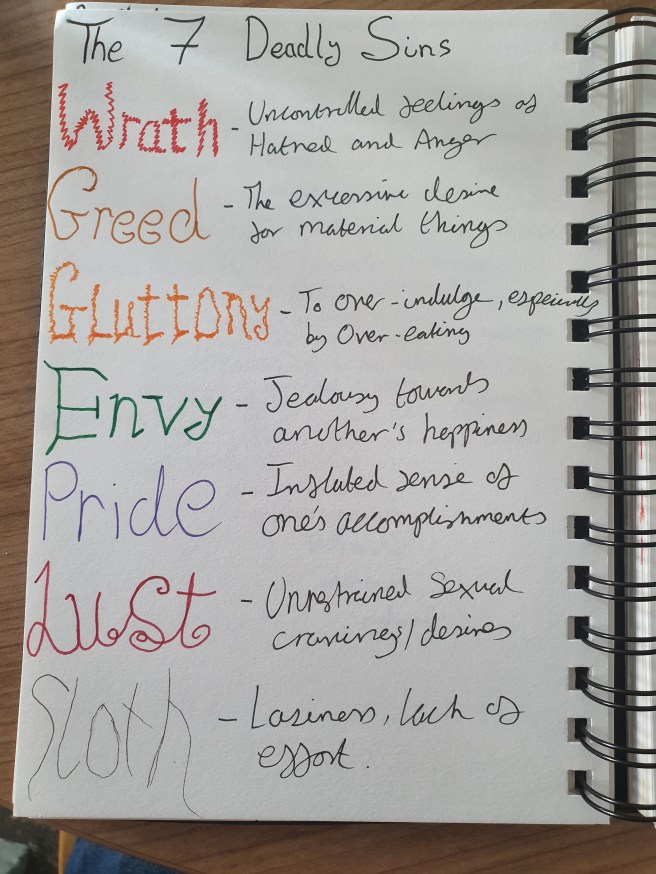 The 7 Deadly Sins
Wrath - Uncontrolled feelings of
Hatred and Anger
Greed - The excessive desire
for material things
Gluttony - To over-indulge, especially
by Over-eating
Envy - Jealousy towards
another's happiness
Pride - Inflated sense of
one's accomplishments
Lust - Unrestrained Sexual
cravings/desires
Sloth - Laziness, lack of
effort.